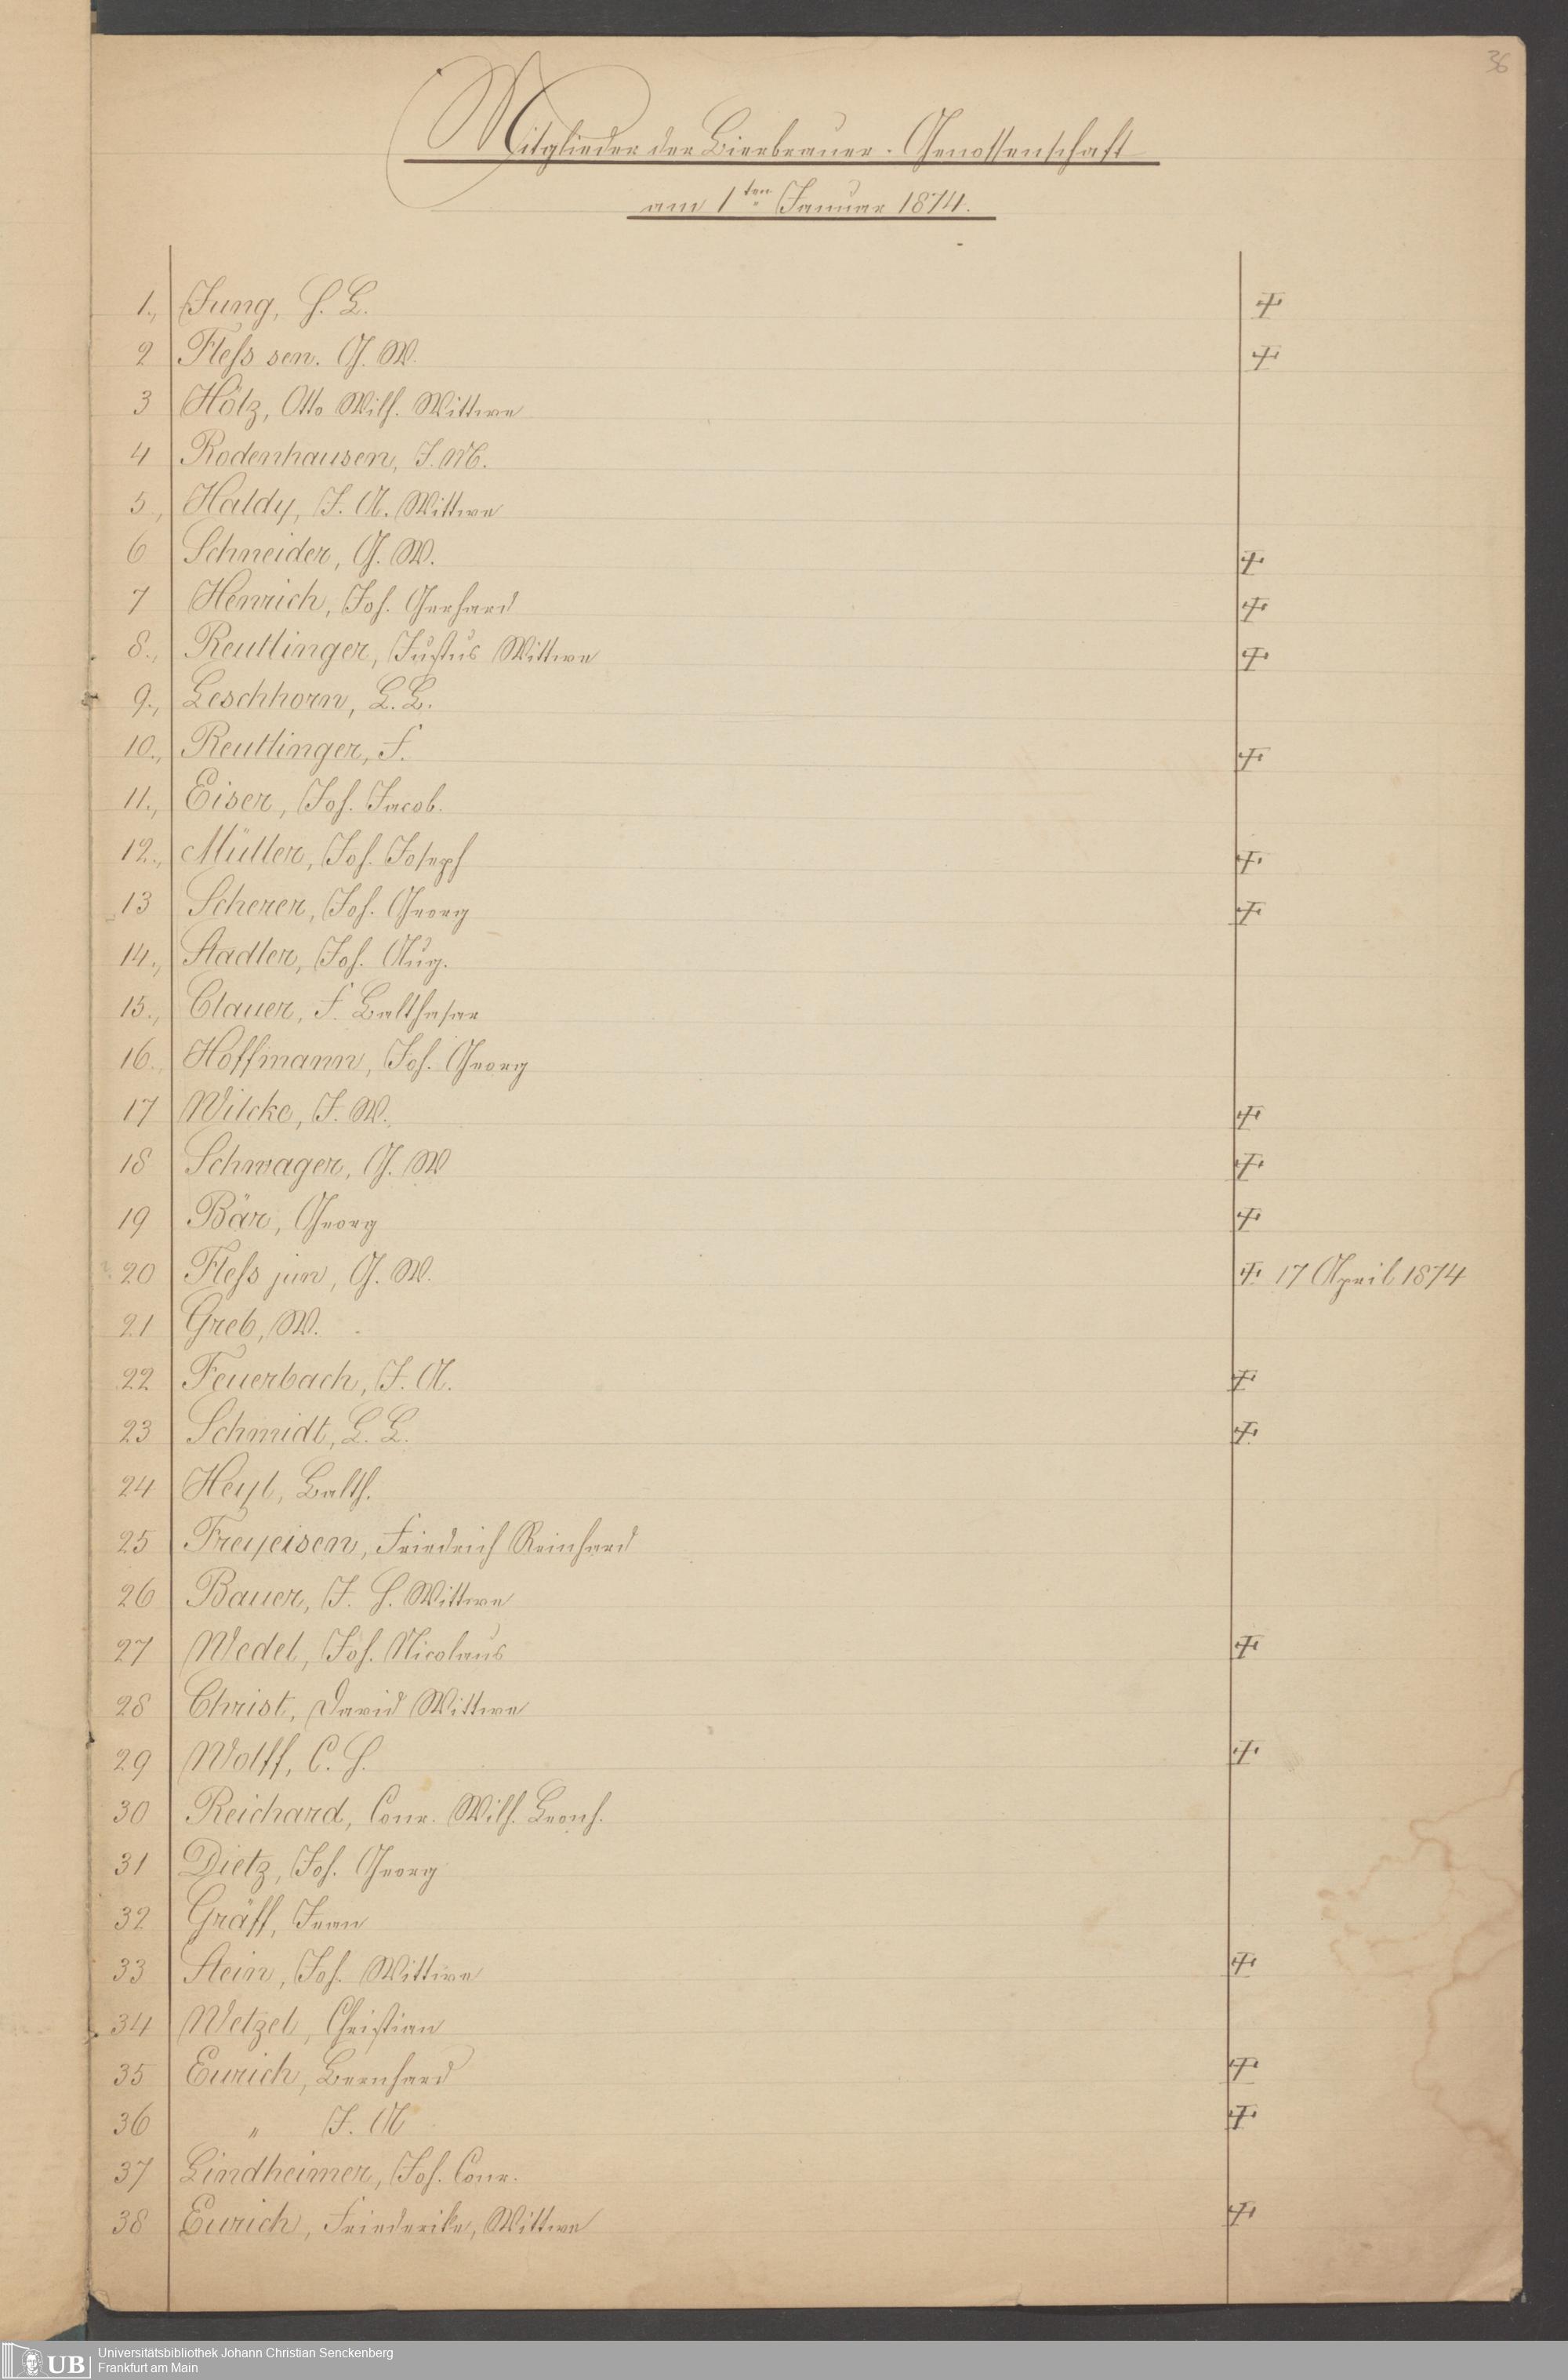 36
Mitglieder der Bierbrauer-Genossenschaft
am 1ten Januar 1874.
1., Jung, H. L. ‡
2 Fleß sen. G. W. ‡
3 Hölz, Otto Wilh. Wittwe
4 Rodenhausen, J. M.
5, Haldy, J. A. Wittwe
6 Schneider, G. W. ‡
7 Henrich, Joh. Gerhard ‡
8., Reutlinger, Justus Wittwe ‡
9., Leschhorn, L. L.
10., Reutlinger, F. ‡
11., Eiser, Joh. Jacob.
12., Müller, Joh. Joseph ‡
13 Scherer, Joh. Georg ‡
14., Stadler, Joh. Aug.
15., Clauer, F. Balthasar
16., Hoffmann, Joh. Georg
17 Wilcke, J. W. ‡
18 Schwager, G. W ‡
19 Bär, Georg ‡
20 Fleß jun, G. W. ‡ 17 April 1874
21 Greb, W.
22 Feuerbach, J. A. ‡
23 Schmidt, L. L. ‡
24 Heyl, Balth.
25 Freyeisen, Friedrich Reinhard
26 Bauer, J. H. Wittwe
27 Wedel, Joh. Nicolaus ‡
28 Christ, David Wittwe
29 Wolff, C. H. ‡
30 Reichard, Conr. Wilh. Leonh.
31 Dietz, Joh. Georg
32 Gräff, Jean
33 Stein, Joh. Wittwe ‡
34 Wetzel, Christian
35 Eurich, Bernhard ‡
36 " J. A ‡
37 Lindheimer, Joh. Conr.
38 Eurich, Friederike, Wittwe ‡
UB
Universitätsbibliothek Johann Christian Senckenberg
Frankfurt am Main